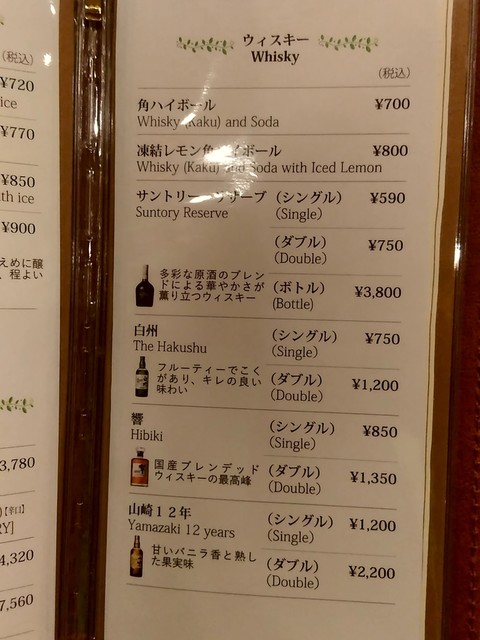 (税込)
¥720
ice
¥770
¥850
th ice
¥900
えめに醸
、程よい
3,780
【辛口】
RY]
4,320
7,560
ウィスキー
Whisky
(税込)
角ハイボール ¥700
Whisky (Kaku) and Soda
凍結レモン角ハイボール ¥800
Whisky (Kaku) and Soda with Iced Lemon
サントリーリザーブ (シングル) ¥590
Suntory Reserve (Single)
(ダブル) ¥750
(Double)
多彩な原酒のブレン
ドによる華やかさが
薫り立つウィスキー
(ボトル) ¥3,800
(Bottle)
白州 (シングル) ¥750
The Hakushu (Single)
フルーティーでこく
があり、キレの良い
味わい
(ダブル) ¥1,200
(Double)
響 (シングル) ¥850
Hibiki (Single)
国産ブレンデッド
ウィスキーの最高峰
(ダブル) ¥1,350
(Double)
山崎12年 (シングル) ¥1,200
Yamazaki 12 years (Single)
甘いバニラ香と熟し
た果実味
(ダブル) ¥2,200
(Double)